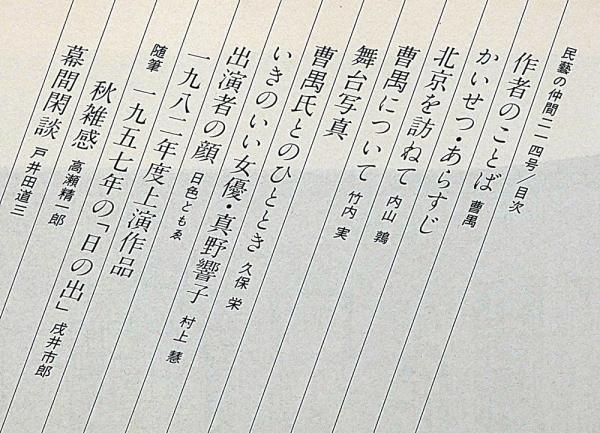 民藝の仲間二一四号/目次
作者のことば 曹禺
かいせつ・あらすじ
北京を訪ねて 内山 鶉
曹禺について 竹内 実
舞台写真
曹禺氏とのひととき 久保 栄
いきのいい女優・真野響子 村上 慧
出演者の顔 日色ともゑ
一九八二年度上演作品
随筆 一九五七年の「日の出」 戌井市郎
秋雑感 高瀬精一郎
幕間閑談 戸井田道三